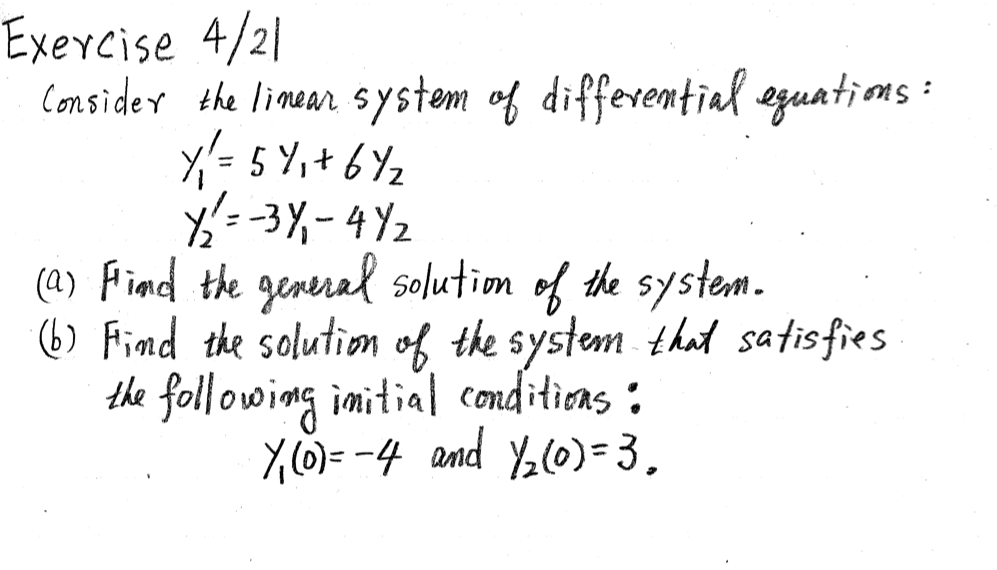 Exercise 4/21
Consider the linear system of differential equations:
y₁' = 5y₁ + 6y₂
y₂' = -3y₁ - 4y₂
(a) Find the general solution of the system.
(b) Find the solution of the system that satisfies
the following initial conditions:
y₁(0) = -4 and y₂(0) = 3.